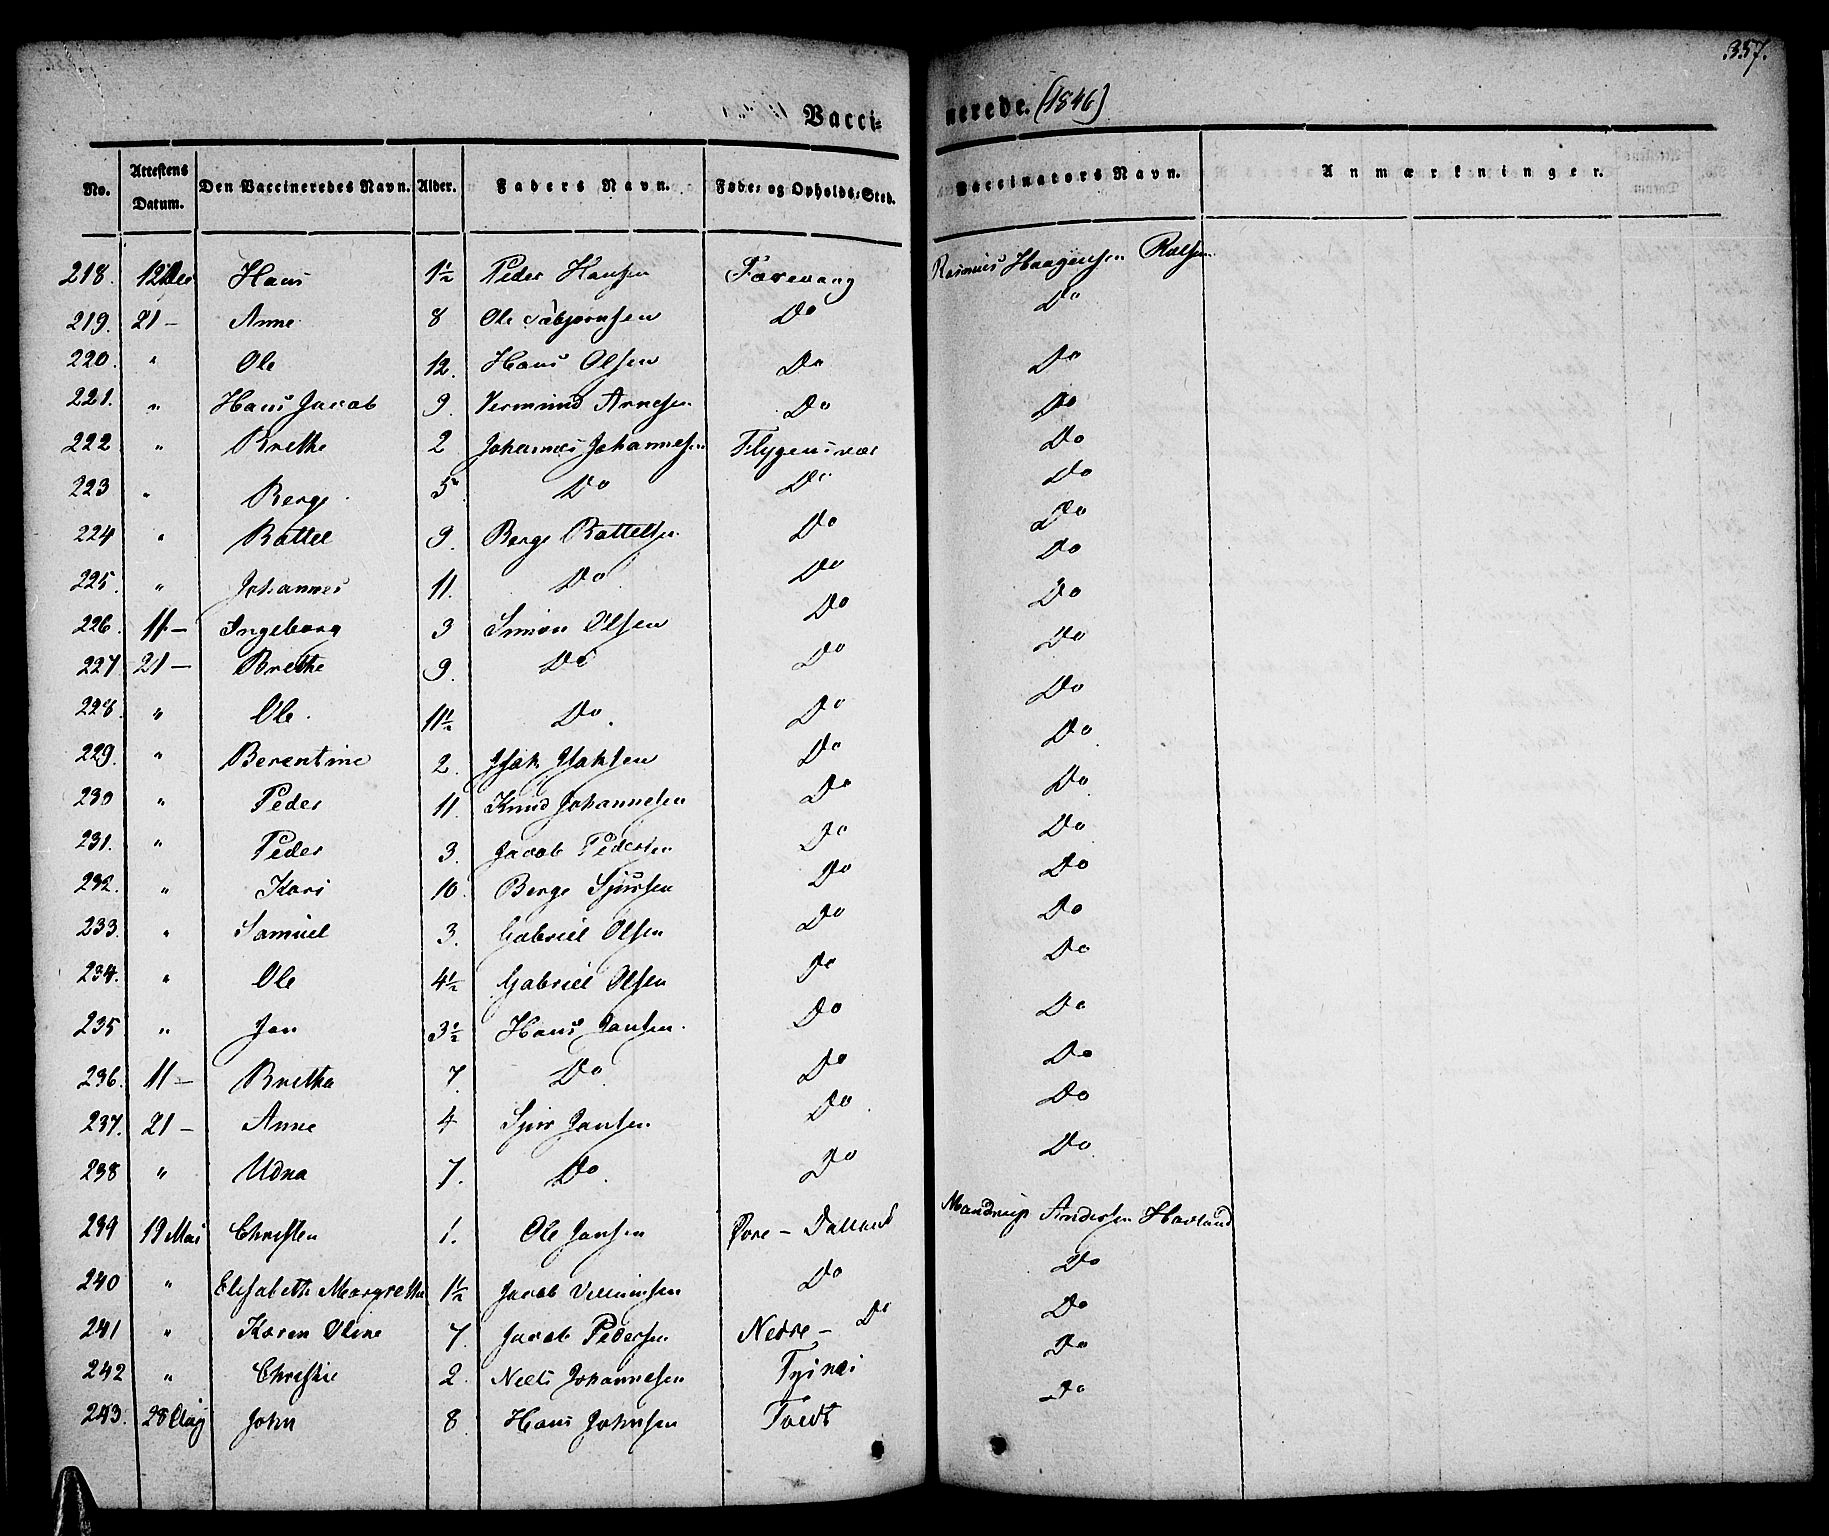 357.
Vaccinerede. (1846)
No. | Attestens Datum. | Den Vaccineredes Navn. | Alder. | Faders Navn. | Føde- og Opholds-Sted. | Vaccinators Navn. | Anmærkninger.
218. | 12 | Hans | 1½ | Peder Hansen | Farevaag | Rasmus Haagensen
219. | 21 – | Anne | 8 | Ole | Do | Do
220. | " | Ole | 12. | Hans Olsen | Do | Do
221. | " | Hans Jacob | 9. | Vermund Arnesen | Do | Do
222 | " | Brethe | 2 | Johannes Johannesen | Flygensvær | Do
223 | " | Berge | 5 | Do | Do | Do
224 | " | Rottel | 9. | Berge Rottelsen | Do | Do
225. | " | Johannes | 11. | Do | Do | Do
226. | 11 – | Ingeborg | 3 | Simon Olsen | Do | Do
227 | 21 – | Brethe | 9. | Do | Do | Do
228. | " | Ole. | 11½ | Do. | Do | Do
229. | " | Berentine | 2. | Isak Isaksen | Do | Do
230 | " | Peder | 11. | Knud Johannesen | Do | Do
231. | " | Peder | 3. | Jacob Pedersen | Do | Do
232. | " | Kari | 10. | Berge Sjursen | Do | Do
233. | " | Samuel | 3. | Gabriel Olsen | Do | Do
234. | " | Ole | 4½ | Gabriel Olsen | Do | Do
235 | " | Jan | 3½ | Hans Jansen. | Do | Do
236. | 11 – | Bretha | 7. | Do | Do | Do
237. | 21 – | Anne | 4 | Sjur Jansen | Do. | Do
238 | " | Udna | 7. | Do. | Do | Do
239 | 19 Mai | Christen | 1. | Ole Jansen | Øvre – Dalland | Mandrup Andersen Havland
240 | " | Elisabeth Margrethe | 1½ | Jacob Villumsen | Do | Do
241 | " | Karen Oline | 7. | Jacob Pedersen | Nedre – Do | Do
242 | " | Christie | 2. | Niels Johannesen | Tysnæs | Do
243. | 28 Aug | John | 8. | Hans Johnsen | Tvedt | Do